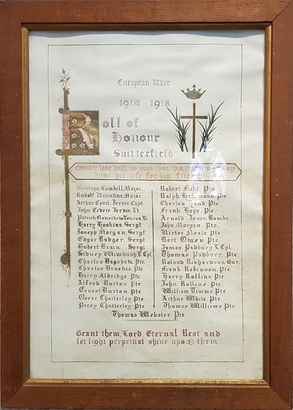 European War
1914 1918
Roll of
Honour
Snitterfield
Greater love hath no man than this, that a man lay
down his life for his friends
Major.
Robert
Pte
Rudolf Valentine, Major.
Ralph Pte
Arthur Cyril Capt.
Charles Pte
John Lt.
Frank Pte.
Patrick Lt.
Arnold James
Harry Hopkins, Sergt
John Morgan. Pte.
Joseph Morgan Sergt
Victor Pte
Edgar Badger, Sergt
Bert Owen Pte
Robert Sergt
James Podbury L. Cpl.
Sidney L. Cpl.
Thomas Podbury. Pte.
Charles Pte
Roland Richardson Gnr.
Charles Brookes Pte.
Frank Robinson. Pte
Harry Aldridge. Pte.
Harry Rollins Pte
Alfred Burton Pte
John Rollins Pte
Ernest Burton Pte
William Timms. Pte
Chatterley. Pte
Arthur White. Pte
Percy Chatterley. Pte
Thomas Williams Pte
Thomas Webster. Pte
Grant them Lord Eternal Rest and
let light perpetual shine upon them